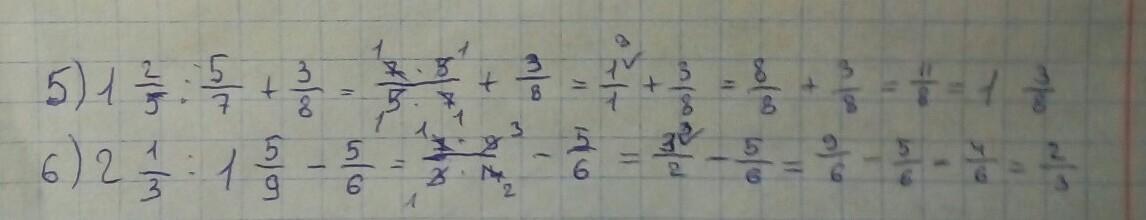 5) 1 2/5 : 5/7 + 3/8 = 7·5/5·7 + 3/8 = 1/1 + 3/8 = 8/8 + 3/8 = 11/8 = 1 3/8
6) 2 1/3 : 1 5/9 - 5/6 = 7·9/3·14 - 5/6 = 3/2 - 5/6 = 9/6 - 5/6 = 4/6 = 2/3